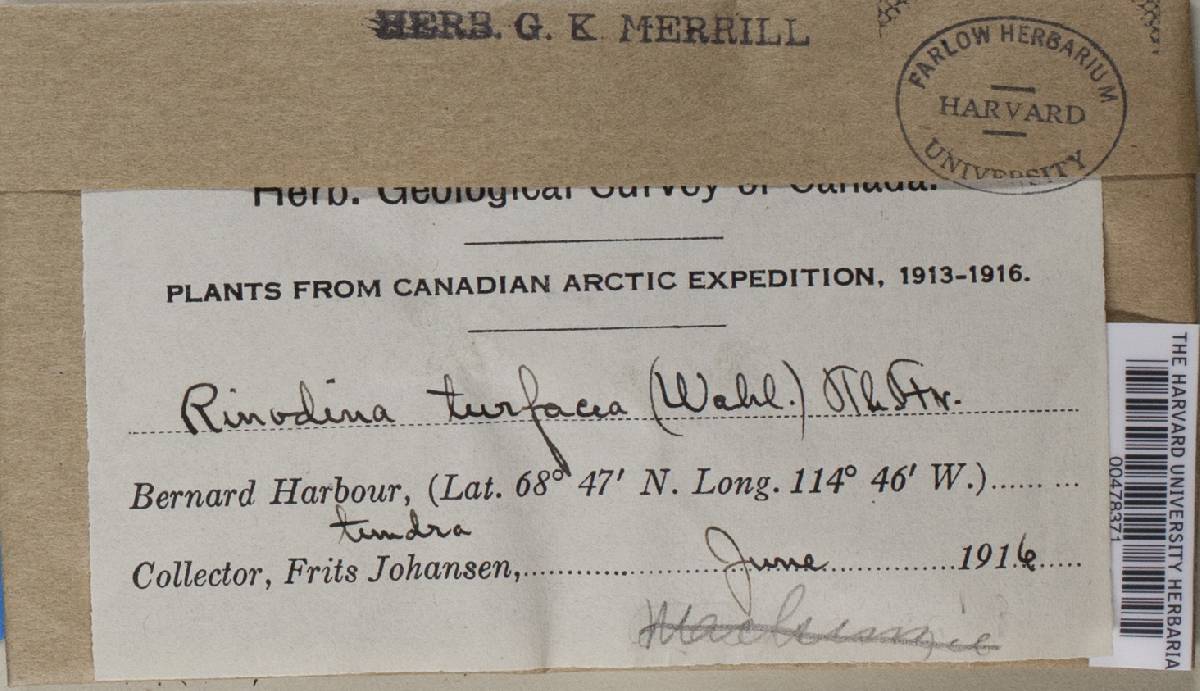 HERB. G. K. MERRILL
FARLOW HERBARIUM
HARVARD
UNIVERSITY
Herb. Geological Survey of Canada.
PLANTS FROM CANADIAN ARCTIC EXPEDITION, 1913-1916.
Rinodina turfacea (Wahl.) Th. Fr.
Bernard Harbour, (Lat. 68° 47' N. Long. 114° 46' W.)
tundra
Collector, Frits Johansen, June 1916
THE HARVARD UNIVERSITY HERBARIA
00478371